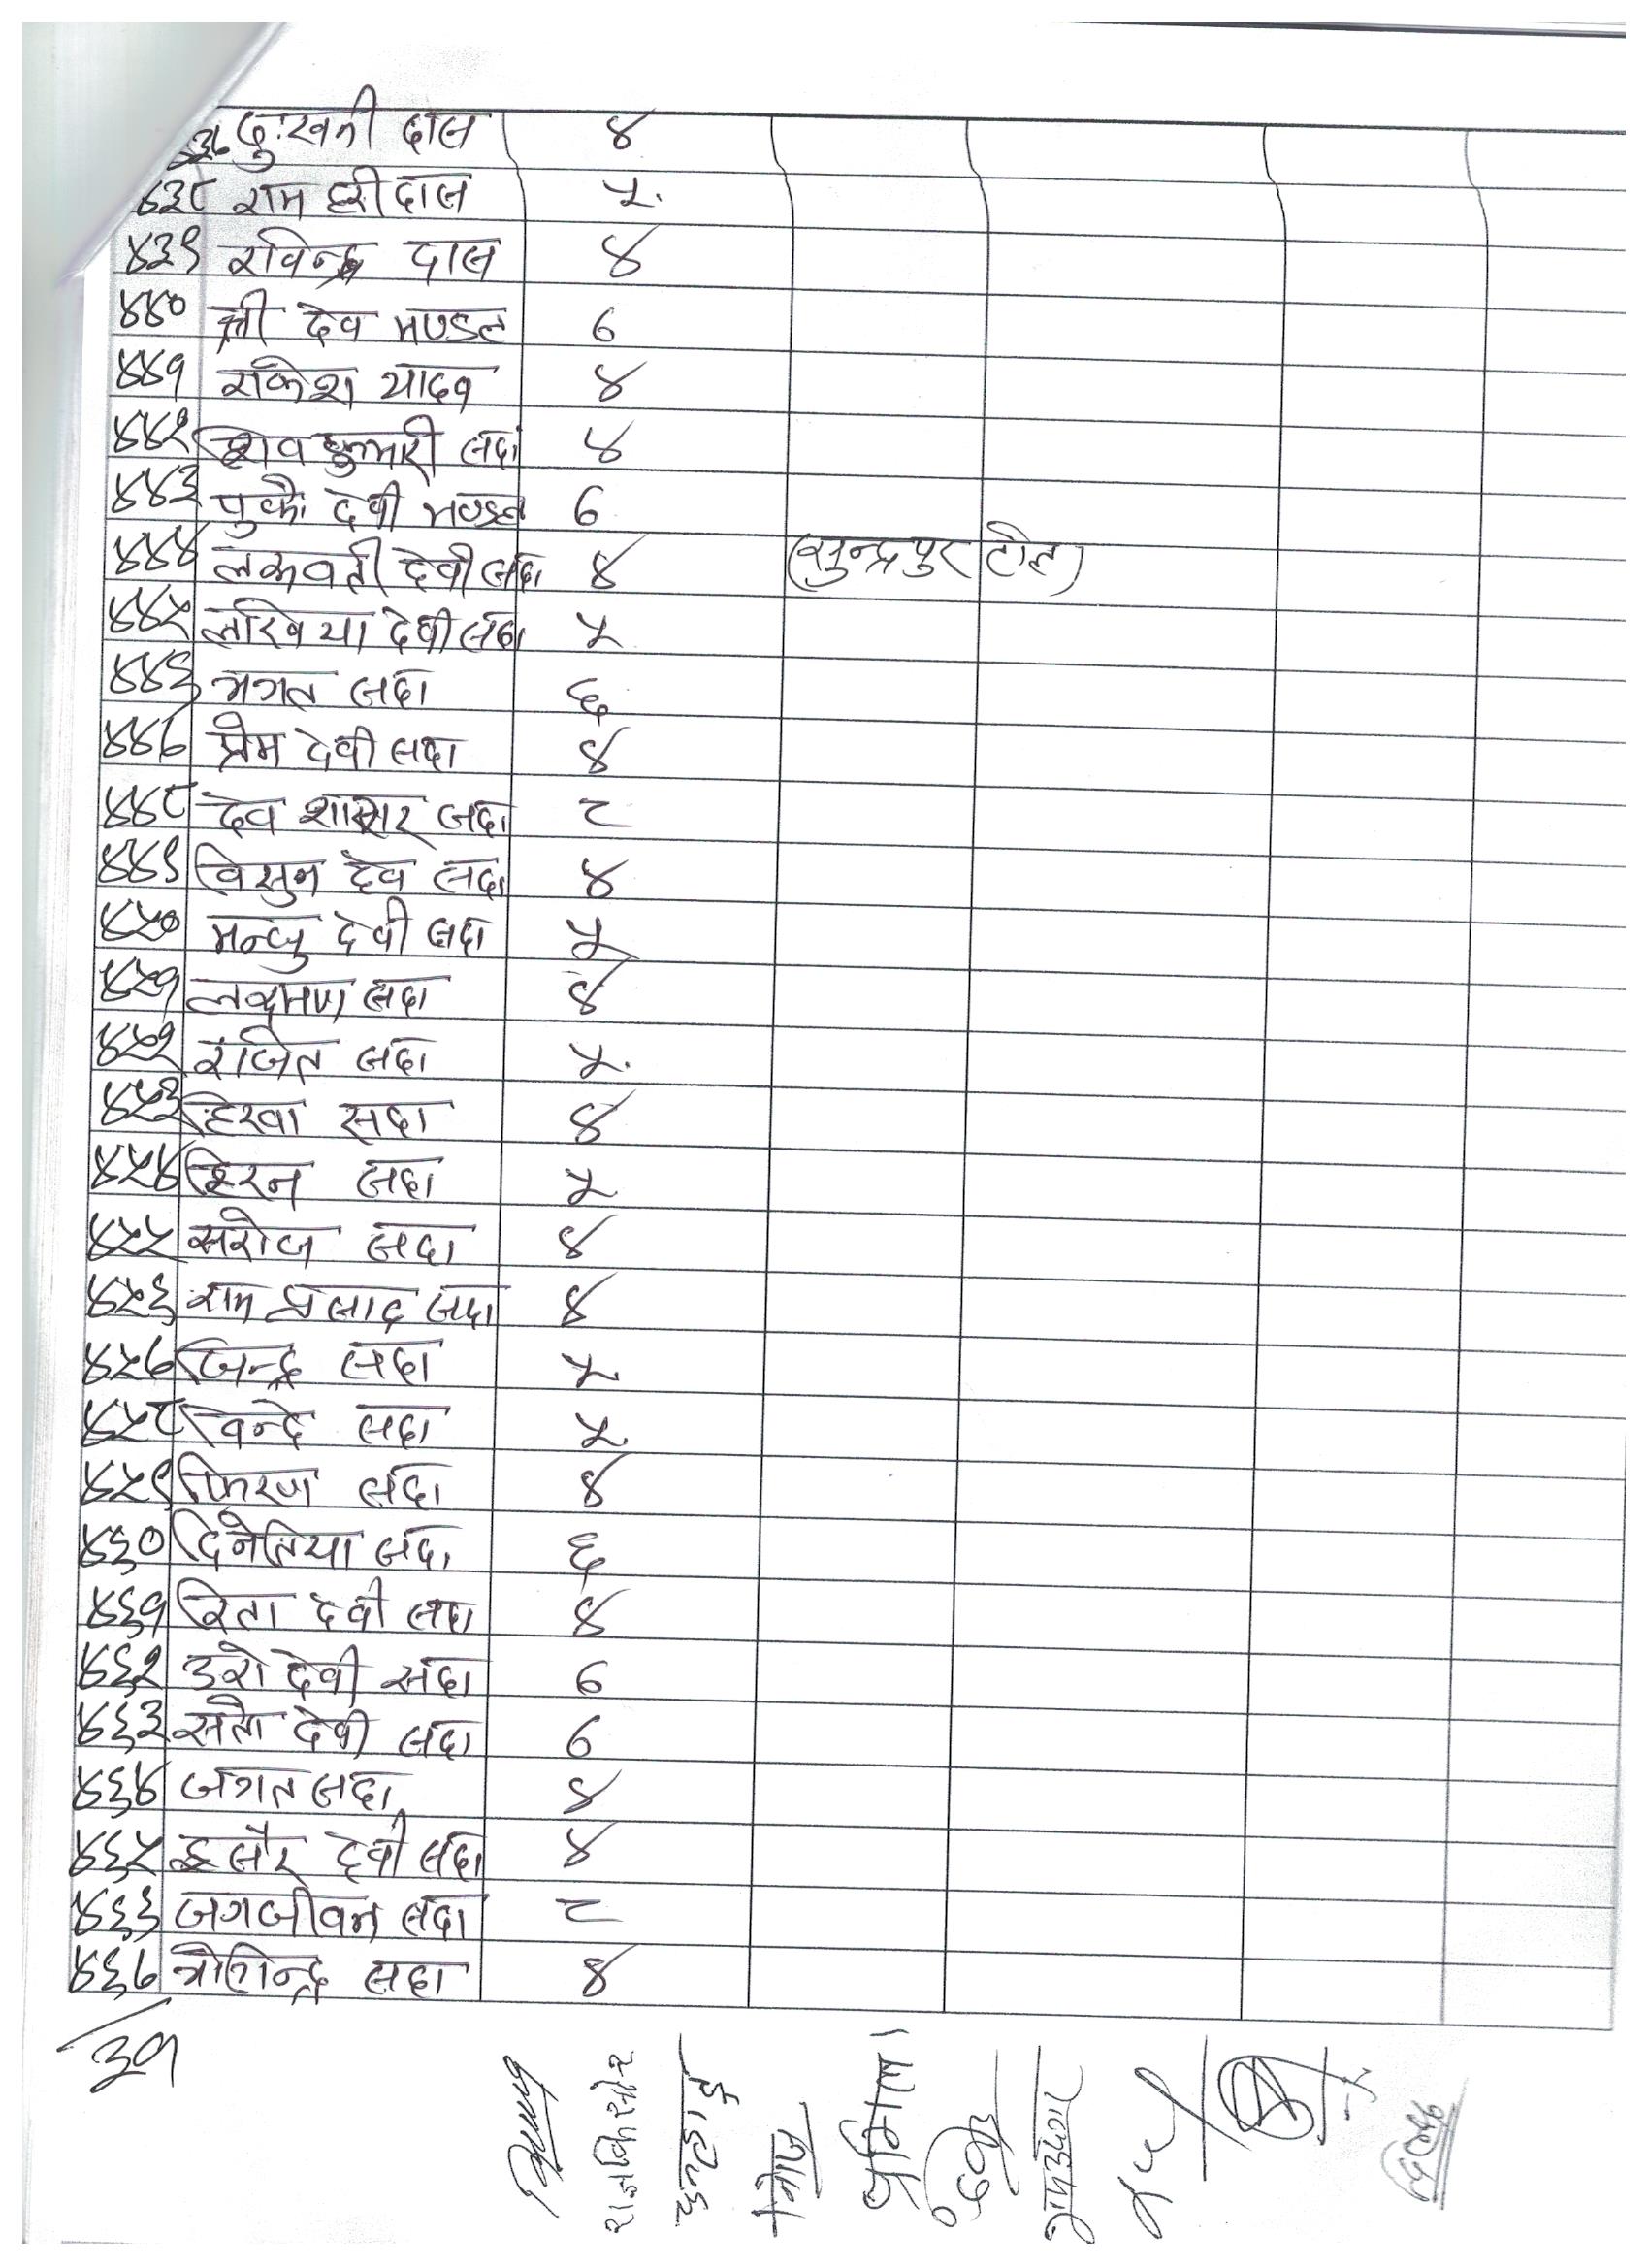 ४३७ दुःखनी दास ४
४३८ राम हरी दास ५.
४३९ रविन्द्र दास ४
४४० श्री देव मण्डल ७
४४१ राकेश यादव ४
४४२ शिव कुमारी सदा ४
४४३ देवी मण्डल ७
४४४ देवी सदा ४ (सुन्द्रपुर टोल)
४४५ लखिया देवी सदा ५
४४६ भगत सदा ६
४४७ प्रेम देवी सदा ४
४४८ देव सदा ८
४४९ विसुन देव सदा ४
४५० मन्जु देवी सदा ५
४५१ लक्ष्मण सदा ४
४५२ रंजित सदा ५.
४५३ हिरवा सदा ४
४५४ हिरन सदा ५
४५५ सरोज सदा ४
४५६ राम प्रसाद सदा ४
४५७ जिन्द्र सदा ५
४५८ विन्दे सदा ५
४५९ किरण सदा ४
४६० दिनेतिया सदा ६
४६१ रिता देवी सदा ४
४६२ उरो देवी सदा ७
४६३ सतो देवी सदा ७
४६४ जगत सदा ४
४६५ देवी सदा ४
४६६ जगजीवन सदा ८
४६७ सदा ४
३१
राजकिसोर
उर्मिला